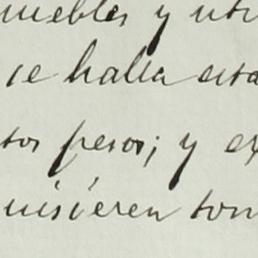 muebles y uti
se halla esta
tos pesos; y ex
uisieren tom